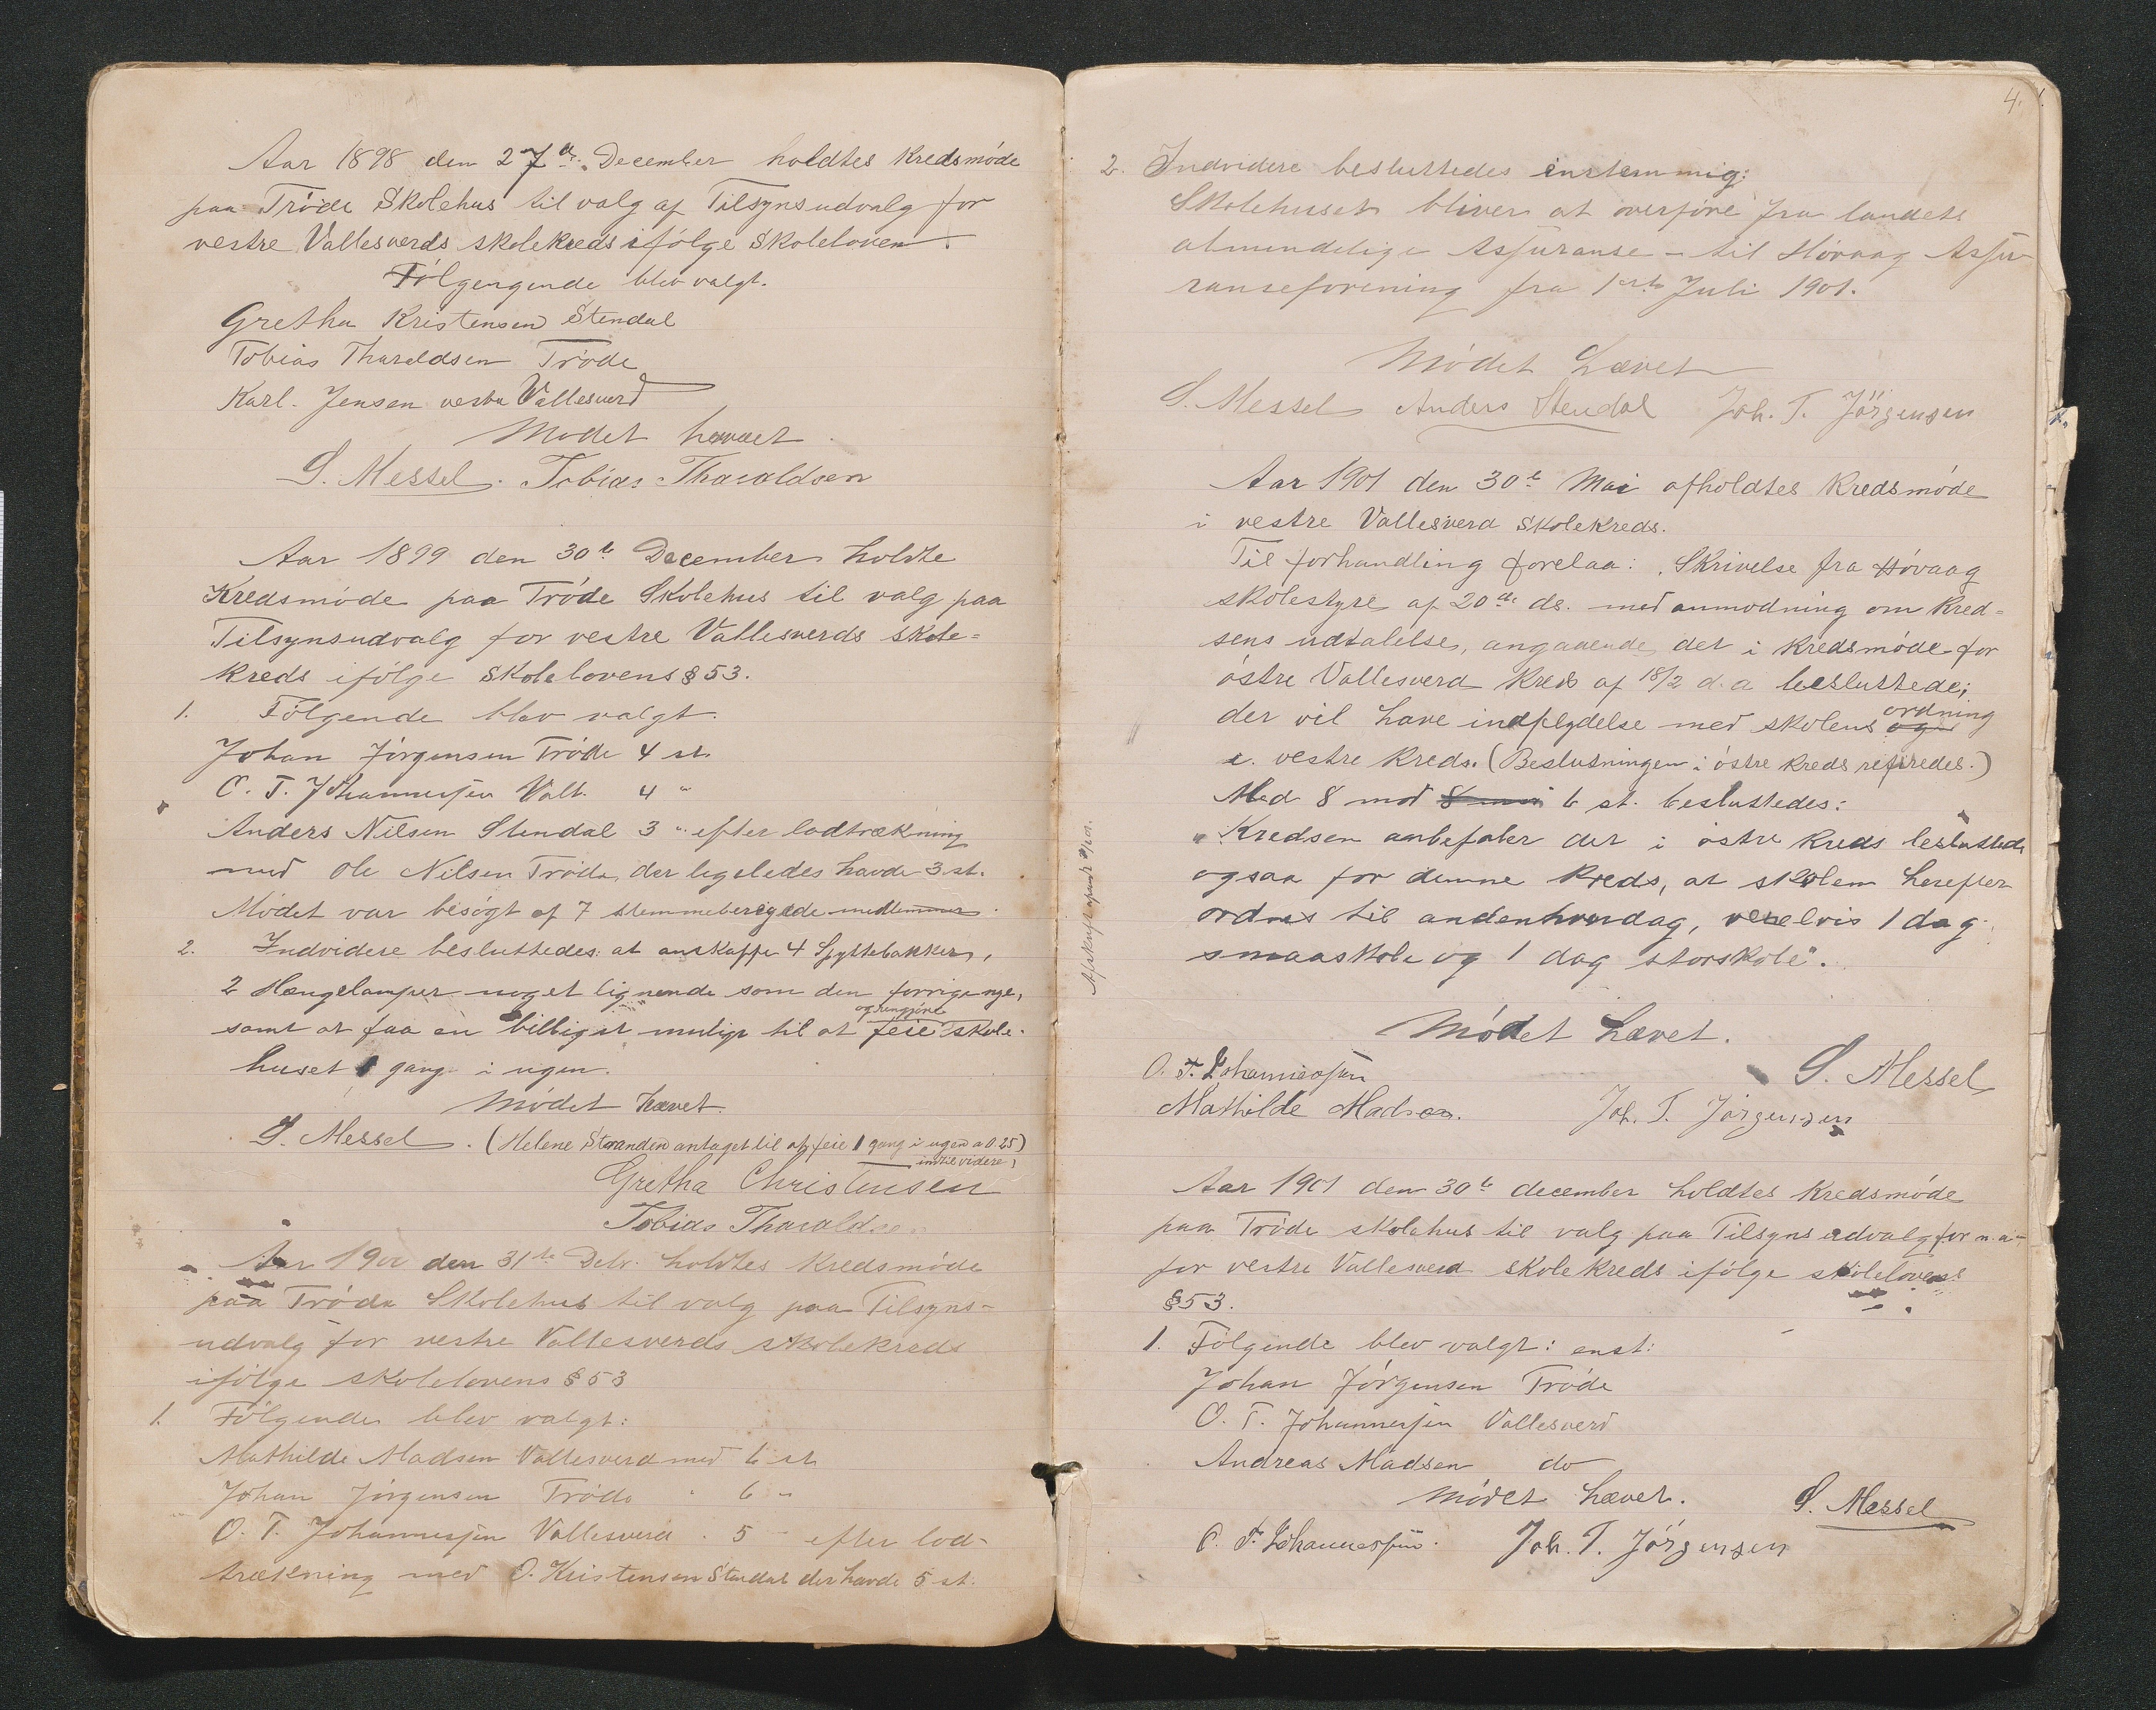 Aar 1898 den 27de December holdtes Kredsmøde
paa Trøde Skolehus til valg af Tilsynsudvalg for
vestre Vallesverds skolekreds ifølge Skoleloven.
Følgengende blev valgt.
Gretha Kristensen Stendal
Tobias Tharaldsen Trøde
Karl. Jensen vestre Vallesverd
Mødet hævet.
S. Messel. Tobias Tharaldsen
Aar 1899 den 30te December holdte
Kredsmøde paa Trøde Skolehus til valg paa
Tilsynsudvalg for vestre Vallesverds skole=
kreds ifølge Skolelovens § 53.
1. Følgende blev valgt.
Johan Jørgensen Trøde 4 st.
O. T. Johannesen Vall. 4 "
Anders Nilsen Stendal 3 " efter lodtrækning
med Ole Nilsen Trøde, der ligeledes havde 3 st.
Mødet var besøgt af 7 stemmeberigede medlemmer.
2. Indvidere besluttedes: at anskaffe 4 Spyttebakker,
2 Hængelamper noget lignende som den forrige nye,
og rengjøre
samt at faa en billigst muligt til at feie skole-
huset 1 gang i ugen.
Mødet hævet.
S. Messel. (Helene Stranden antaget til at feie 1 gang i ugen a 0 25)
indtil videre)
Gretha Christensen
Tobias Tharaldsen
Aar 1900 den 31te Debr. holdtes Kredsmøde
paa Trøde Skolehus til valg paa Tilsyns-
udvalg for vestre Vallesverds skolekreds
ifølge skolelovens § 53
1. Følgende blev valgt:
Mathilde Madsen Vallesverd med 6 st
Johan Jørgensen Trøde " 6 "
O. T. Johannesen Vallesverd " 5 - efter lod-
trækning med O. Kristensen Stendal der havde 5 st.
4.
2. Indvidere besluttedes enstemmig:
Skolehuset bliver at overføre fra landets
almindelige Assuranse - til Høvaag Assu-
ranseforening fra 1ste Juli 1901.
Mødet hævet
S. Messel Anders Stendal Joh. T. Jörgensen
Aar 1901 den 30te Mai afholdtes Kredsmøde
i vestre Vallesverd Skolekreds.
Til forhandling forelaa: Skrivelse fra Høvaag
skolestyre af 20de ds. med anmodning om Kred=
sens udtalelse, angaaende det i Kredsmøde for
østre Vallesverd Kreds af 18/2 d. a besluttede;
ordning
der vil have indflydelse med skolens og
i vestre Kreds. (Beslutningen i østre Kreds refiredes.)
Med 8 mod 8 mod 6 st. besluttedes:
"Kredsen anbefaler det i østre Kreds besluttede
ogsaa for denne Kreds, at skolen herefter
ordnes til andenhverdag, vexelvis 1 dag
smaaskole og 1 dag storskole".
Mødet hævet.
O. T. Johannesen S. Messel
Mathilde Madsen. Joh. T. Jörgensen
Aar 1901 den 30te december holdtes Kredsmøde
paa Trøde skolehus til valg paa Tilsynsudvalg for n. a-
for vestre Vallesverd skolekreds ifølge skolelovens
§ 53.
1. Følgende blev valgt: enst:
Johan Jørgensen Trøde
O. T. Johannesen Vallesverd
Andreas Madsen do
Mødet hævet. S. Messel
O. T. Johannesen. Joh. T. Jörgensen